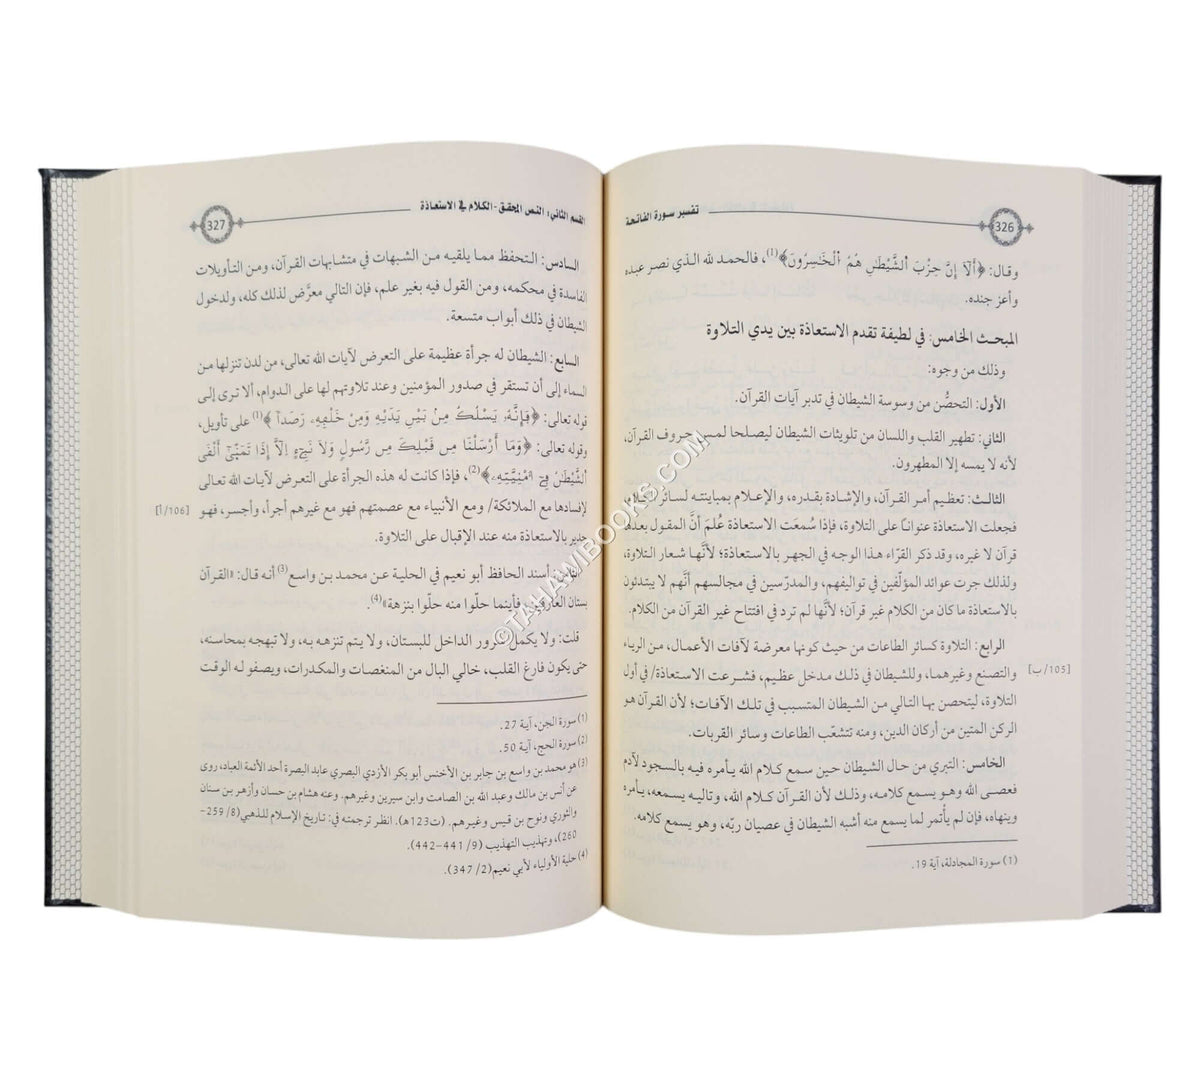 326
تفسير سورة الفاتحة
وقال: ﴿أَلَآ إِنَّ حِزْبَ اَ۬لشَّيْطَٰنِ هُمُ اُ۬لْخَٰسِرُونَ﴾(1)، فالحمد لله الذي نصر عبده
وأعز جنده.
المبحث الخامس: في لطيفة تقدم الاستعاذة بين يدي التلاوة
وذلك من وجوه:
الأول: التحصُّن من وسوسة الشيطان في تدبر آيات القرآن.
الثاني: تطهير القلب واللسان من تلويثات الشيطان ليصلحا لمس حروف القرآن،
لأنه لا يمسه إلا المطهرون.
الثالث: تعظيم أمر القرآن، والإشادة بقدره، والإعلام بمباينته لسائر الكلام،
فجعلت الاستعاذة عنوانا على التلاوة، فإذا سُمعَت الاستعاذة عُلمَ أنَّ المقول بعدها
قرآن لا غيره، وقد ذكر القرّاء هذا الوجه في الجهر بالاستعاذة؛ لأنَّها شعار التلاوة،
ولذلك جرت عوائد المؤلّفين في تواليفهم، والمدرّسين في مجالسهم أنَّهم لا يبتدئون
بالاستعاذة ما كان من الكلام غير قرآن؛ لأنَّها لم ترد في افتتاح غير القرآن من الكلام.
الرابع: التلاوة كسائر الطاعات من حيث كونها معرضة لآفات الأعمال، من الرياء
والتصنع وغيرهما، وللشيطان في ذلك مدخل عظيم، فشرعت الاستعاذة/ في أول
[105/ب]
التلاوة، ليتحصن بها التالي من الشيطان المتسبب في تلك الآفات؛ لأن القرآن هو
الركن المتين من أركان الدين، ومنه تتشعّب الطاعات وسائر القربات.
الخامس: التبري من حال الشيطان حين سمع كلام الله يأمره فيه بالسجود لآدم
فعصى الله وهو يسمع كلامه، وذلك لأن القرآن كلام الله، وتاليه يسمعه، يأمره
وينهاه، فإن لم يأتمر لما يسمع منه أشبه الشيطان في عصيان ربّه، وهو يسمع كلامه.
(1) سورة المجادلة، آية 19.
القسم الثاني: النص المحقق - الكلام في الاستعاذة
327
السادس: التحفظ مما يلقيه من الشبهات في متشابهات القرآن، ومن التأويلات
الفاسدة في محكمه، ومن القول فيه بغير علم، فإن التالي معرَّض لذلك كله، ولدخول
الشيطان في ذلك أبواب متسعة.
السابع: الشيطان له جرأة عظيمة على التعرض لآيات الله تعالى، من لدن تنزلها من
السماء إلى أن تستقر في صدور المؤمنين وعند تلاوتهم لها على الدوام، ألا ترى إلى
قوله تعالى: ﴿فَإِنَّهُۥ يَسْلُكُ مِنۢ بَيْنِ يَدَيْهِ وَمِنْ خَلْفِهِۦ رَصَداً﴾(1) على تأويل،
وقوله تعالى: ﴿وَمَآ أَرْسَلْنَا مِن قَبْلِكَ مِن رَّسُولٍ وَلَا نَبِيٓءٍ اِلَّآ إِذَا تَمَنَّىٰٓ أَلْقَى
اَ۬لشَّيْطَٰنُ فِےٓ أُمْنِيَّتِهِۦ﴾(2)، فإذا كانت له هذه الجرأة على التعرض لآيات الله تعالى
لإفسادها مع الملائكة/ ومع الأنبياء مع عصمتهم فهو مع غيرهم أجرأ، وأجسر، فهو
[106/أ]
جدير بالاستعاذة منه عند الإقبال على التلاوة.
الثامن: أسند الحافظ أبو نعيم في الحلية عن محمد بن واسع(3) أنه قال: «القرآن
بستان العارفين، فأينما حلّوا منه حلّوا بنزهة»(4).
قلت: ولا يكمل سرور الداخل للبستان، ولا يتم تنزهه به، ولا تبهجه بمحاسنه،
حتى يكون فارغ القلب، خالي البال من المنغصات والمكدرات، ويصفو له الوقت
(1) سورة الجن، آية 27.
(2) سورة الحج، آية 50.
(3) هو محمد بن واسع بن جابر بن الأخنس أبو بكر الأزدي البصري عابد البصرة أحد الأئمة العباد، روى
عن أنس بن مالك وعبد الله بن الصامت وابن سيرين وغيرهم. وعنه هشام بن حسان وأزهر بن سنان
والثوري ونوح بن قيس وغيرهم. (ت123ھ). انظر ترجمته في: تاريخ الإسلام للذهبي (8/ 259-
260)، وتهذيب التهذيب (9/ 441-442).
(4) حلية الأولياء لأبي نعيم (2/ 347).
©TAHAWIBOOKS.COM